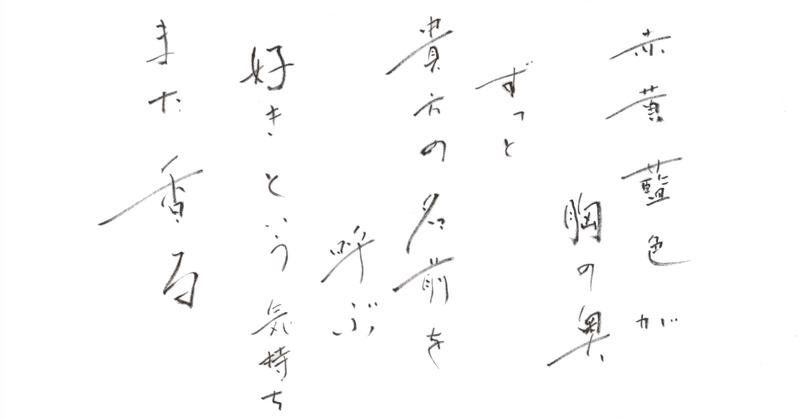 赤黄藍色が
胸の奥
ずっと
貴方の名前を
呼ぶ
好きという気持ち
また香る